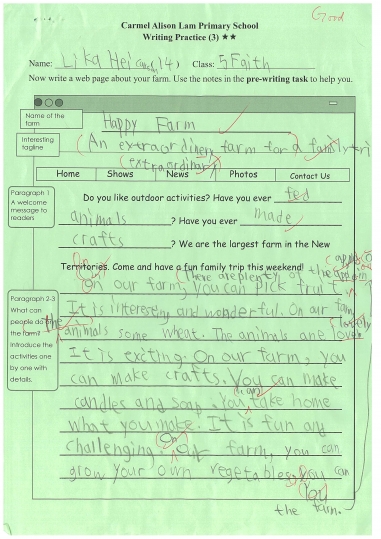 Good
Carmel Alison Lam Primary School
Writing Practice (3) ★★
Name: Lika Hei (14) Class: 5 Faith
Now write a web page about your farm. Use the notes in the pre-writing task to help you.
Name of the farm
Happy Farm
Interesting tagline
(An extraordinery farm for a family tri
(extraordinary)
Home Shows News Photos Contact Us
Paragraph 1
A welcome message to readers
Do you like outdoor activities? Have you ever fed
animals ? Have you ever made
crafts ? We are the largest farm in the New
Territories. Come and have a fun family trip this weekend!
There are plenty of the
On our farm, you can pick fruit
Paragraph 2-3
What can people do at the farm? Introduce the activities one by one with details.
It is interesting and wonderful. On our farm
the animals some wheat. The animals are lovely
It is exciting. On our farm, you
can make crafts. You can make
candles and soap. You take home
can
what you make. It is fun and
challenging. On our farm, you can
grow your own vegetables. You can
You
the farm.